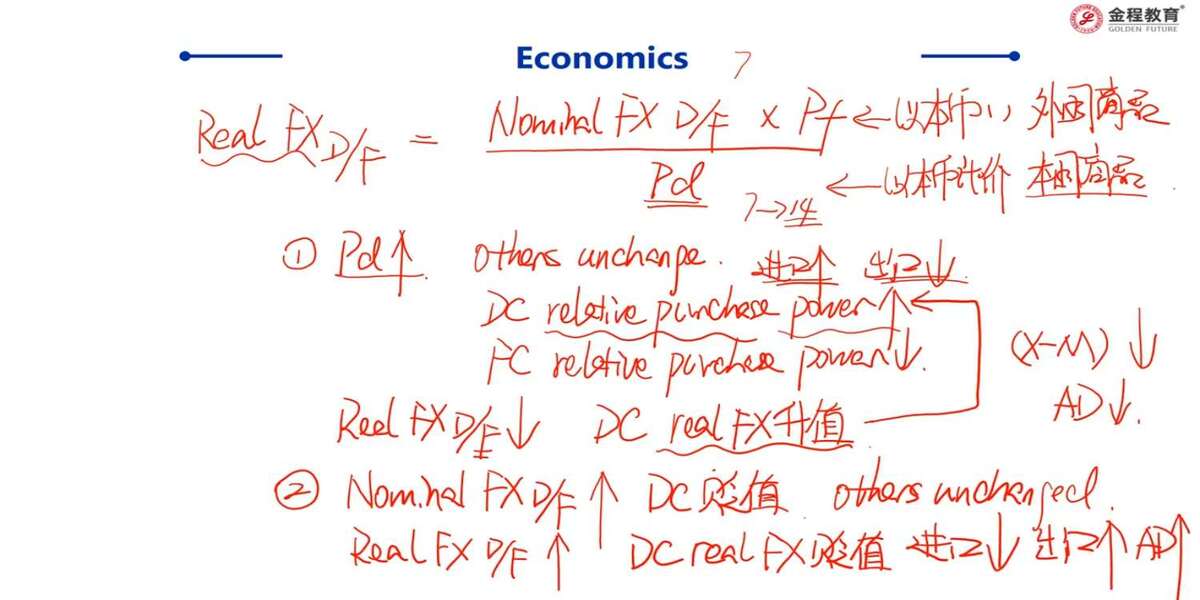 金程教育
GOLDEN FUTURE
Economics 7
Real FX D/F = Nominal FX D/F × Pf ← 以本币计价 外国商品
Pd ← 以本币计价 本国商品
7→14
① Pd↑ others unchange. 进口↑ 出口↓
DC relative purchase power↑
FC relative purchase power↓.
(X-M) ↓
AD↓.
Real FX D/F↓ DC real FX升值
② Nominal FX D/F ↑ DC贬值 others unchanged.
Real FX D/F ↑ DC real FX贬值 进口↓ 出口↑ AD↑